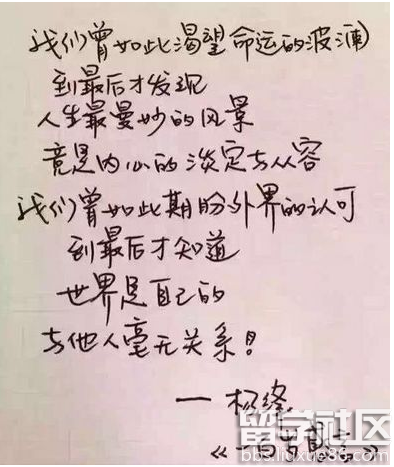 我们曾如此渴望命运的波澜
到最后才发现
人生最曼妙的风景
竟是内心的淡定与从容
我们曾如此期盼外界的认可
到最后才知道
世界是自己的
与他人毫无关系!
一 杨绛
《一百岁感言
留学社区
bbs.liuxue86.com